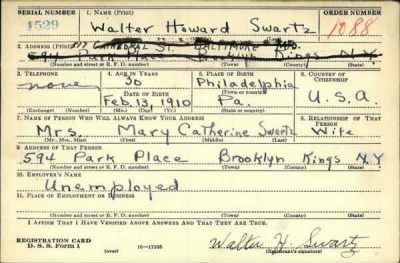 SERIAL NUMBER 1. NAME (Print) ORDER NUMBER
1529 Walter Howard Swartz 1088
2. ADDRESS (Print) 517 CATHEDRAL ST. BALTIMORE MD.
594 Park Place Brooklyn Kings N.Y.
(Number and street or R. F. D. number) (Town) (County) (State)
3. TELEPHONE 4. AGE IN YEARS 5. PLACE OF BIRTH 6. COUNTRY OF CITIZENSHIP
none 30 Philadelphia
DATE OF BIRTH
Feb. 13, 1910 Pa. U.S.A.
(Exchange) (Number) (Mo.) (Day) (Yr.) (State or country)
7. NAME OF PERSON WHO WILL ALWAYS KNOW YOUR ADDRESS 8. RELATIONSHIP OF THAT PERSON
Mrs. Mary Catherine Swartz Wife
(Mr., Mrs., Miss) (First) (Middle) (Last)
9. ADDRESS OF THAT PERSON
594 Park Place Brooklyn Kings N.Y
(Number and street or R. F. D. number) (Town) (County) (State)
10. EMPLOYER'S NAME
Unemployed
11. PLACE OF EMPLOYMENT OR BUSINESS
(Number and street or R. F. D. number) (Town) (County) (State)
I AFFIRM THAT I HAVE VERIFIED ABOVE ANSWERS AND THAT THEY ARE TRUE.
REGISTRATION CARD
D. S. S. Form 1 (over) 16—17105 Walter H. Swartz
(Registrant's signature)